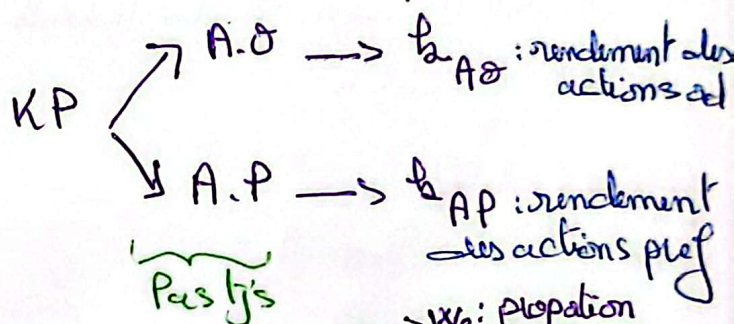 A.O → k_AO : rendement des
actions od
KP
A.P → k_AP : rendement
des actions pref
Pas tjs
: propation